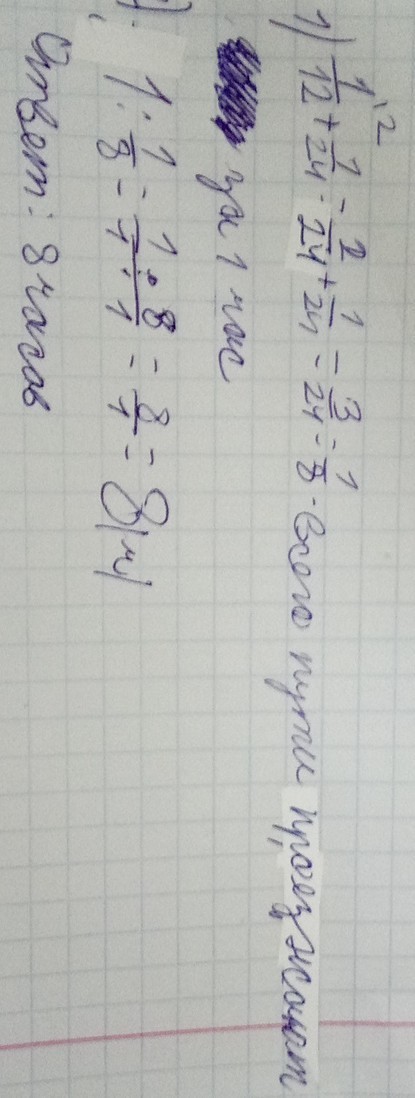 1) 1/12 ² + 1/24 = 2/24 + 1/24 = 3/24 = 1/8 - всего пути проезжают
за 1 час
2). 1 : 1/8 = 1 · 8/1 · 1 = 8/1 = 8(ч)
Ответ: 8 часов